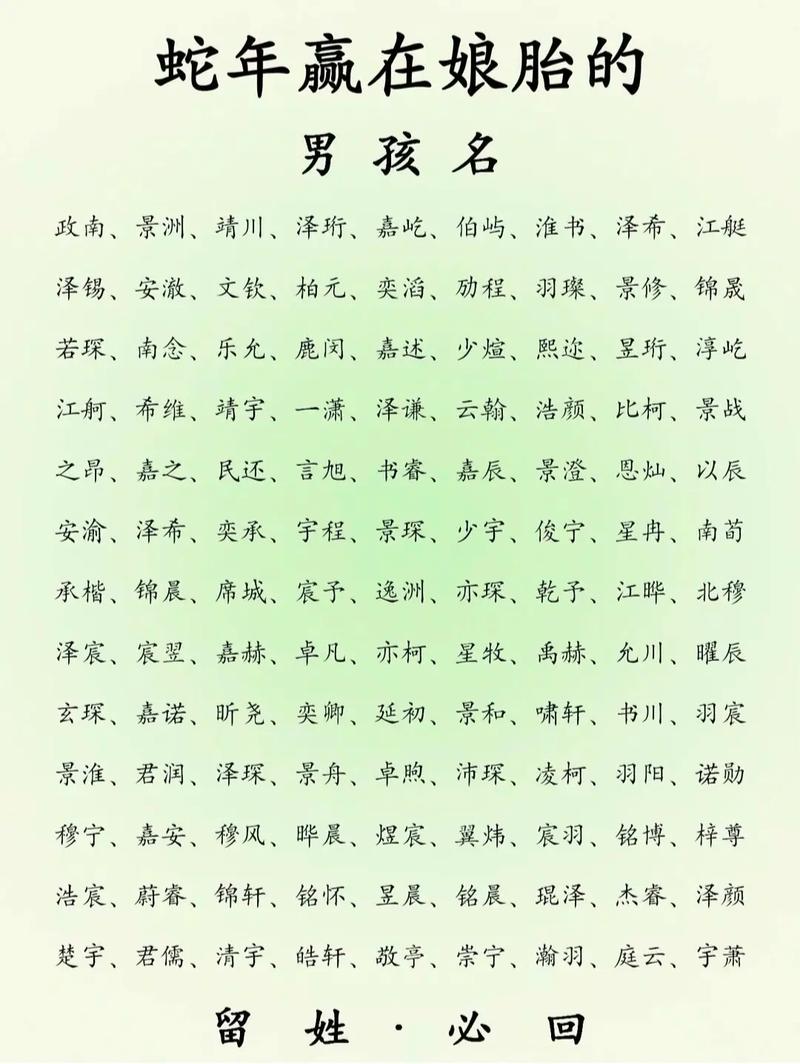 蛇年赢在娘胎的
男孩名
政南、景洲、靖川、泽珩、嘉屹、伯屿、淮书、泽希、江艇
泽锡、安澈、文钦、柏元、奕滔、励程、羽璨、景修、锦晟
若琛、南念、乐允、鹿闵、嘉述、少煊、熙迩、昱珩、淳屹
江舸、希维、靖宇、一潇、泽谦、云翰、浩颜、比柯、景战
之昂、嘉之、民还、言旭、书睿、嘉辰、景澄、恩灿、以辰
安渝、泽希、奕承、宇程、景琛、少宇、俊宁、星冉、南荀
承楷、锦晨、席城、宸予、逸洲、亦琛、乾予、江晔、北穆
泽宸、宸翌、嘉赫、卓凡、亦柯、星牧、禹赫、允川、曜辰
玄琛、嘉诺、昕尧、奕卿、延初、景和、啸轩、书川、羽宸
景淮、君润、泽琛、景舟、卓煦、沛琛、凌柯、羽阳、诺勋
穆宁、嘉安、穆风、晔晨、煜宸、翼炜、宸羽、铭博、梓尊
浩宸、蔚睿、锦轩、铭怀、昱晨、铭晨、琨泽、杰睿、泽颜
楚宇、君儒、清宇、皓轩、敬亭、崇宁、瀚羽、庭云、宇萧
留姓·必回